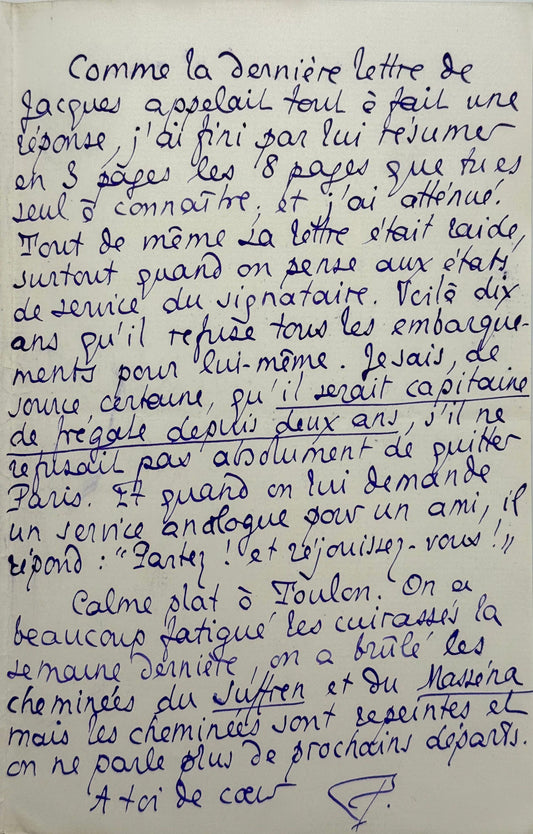 Comme la dernière lettre de
Jacques appelait tout à fait une
réponse, j'ai fini par lui résumer
en 3 pages les 8 pages que tu es
seul à connaître, et j'ai atténué.
Tout de même sa lettre était raide,
surtout quand on pense aux états
de service du signataire. Voilà dix
ans qu'il refuse tous les embarque-
ments pour lui-même. Je sais, de
source certaine, qu'il serait capitaine
de frégate depuis deux ans, s'il ne
refusait pas absolument de quitter
Paris. Et quand on lui demande
un service analogue pour un ami, il
répond : "Partez ! et réjouissez-vous !"
Calme plat à Toulon. On a
beaucoup fatigué les cuirassés la
semaine dernière, on a brûlé les
cheminées du Suffren et du Masséna
mais les cheminées sont repeintes et
on ne parle plus de prochains départs.
A toi de cœur P.